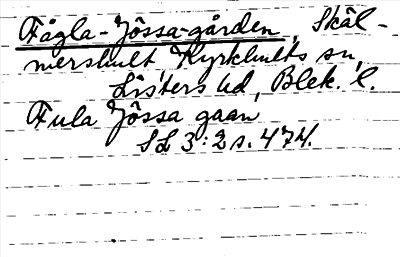 Fågla-Jössa-gården, Skäl-
mershult, Kyrkhults sn,
Listers hd, Blek. l.
Fula Jössa gaan
SL 3:2 s. 474.